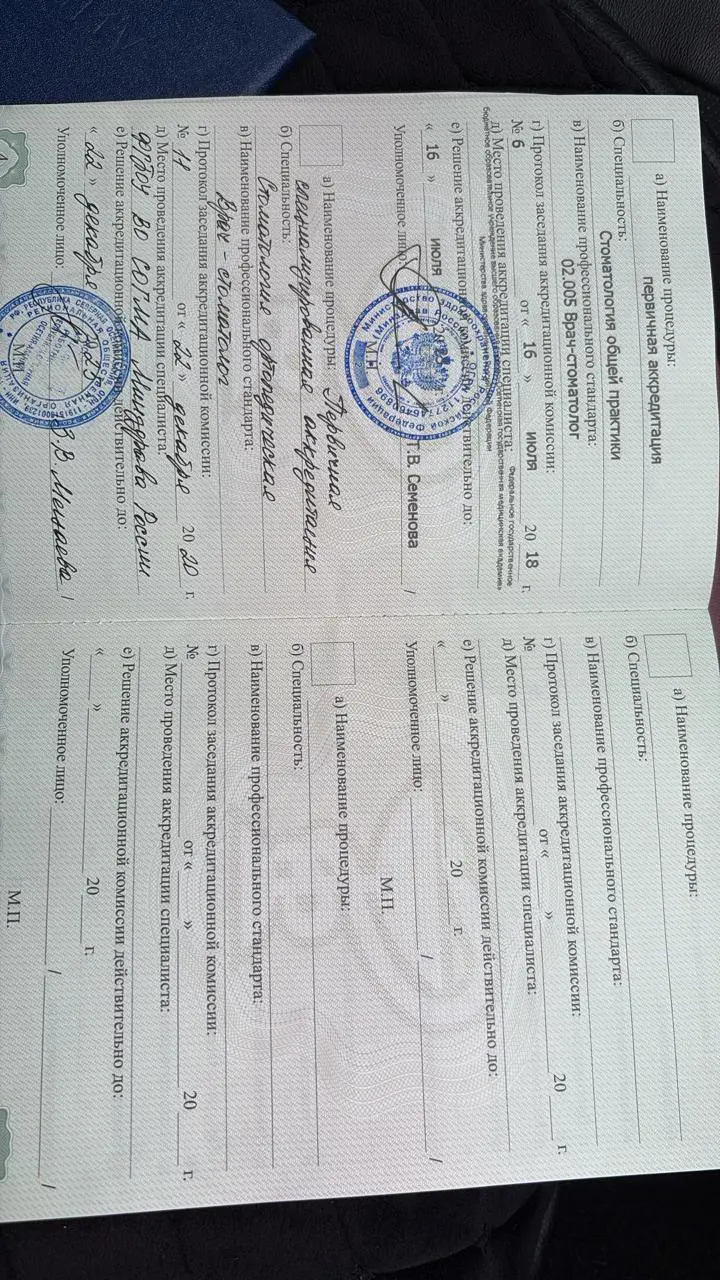 а) Наименование процедуры:
первичная аккредитация
б) Специальность:
Стоматология общей практики
в) Наименование профессионального стандарта:
02.005 Врач-стоматолог
г) Протокол заседания аккредитационной комиссии:
№ 6 от « 16 » июля 20 18 г.
д) Место проведения аккредитации специалиста: Федеральное государственное
бюджетное образовательное учреждение высшего образования государственная медицинская академия»
Министерства здравоохранения Федерации
е) Решение аккредитационной действительно до:
« 16 » июля
Уполномоченное лицо: Т.В. Семенова /
М.П.
а) Наименование процедуры: Первичная
специализированная аккредитация
б) Специальность:
Стоматология ортопедическая
в) Наименование профессионального стандарта:
Врач - стоматолог
г) Протокол заседания аккредитационной комиссии:
№ 11 от « 22 » декабря 20 20 г.
д) Место проведения аккредитации специалиста:
ФГБОУ ВО СОГМА Минздрава России
е) Решение аккредитационной действительно до:
« 22 » декабря
Уполномоченное лицо: /
М.П.
а) Наименование процедуры:
б) Специальность:
в) Наименование профессионального стандарта:
г) Протокол заседания аккредитационной комиссии:
№ от « » 20 г.
д) Место проведения аккредитации специалиста:
е) Решение аккредитационной комиссии действительно до:
« » 20 г.
Уполномоченное лицо: / /
М.П.
а) Наименование процедуры:
б) Специальность:
в) Наименование профессионального стандарта:
г) Протокол заседания аккредитационной комиссии:
№ от « » 20 г.
д) Место проведения аккредитации специалиста:
е) Решение аккредитационной комиссии действительно до:
« » 20 г.
Уполномоченное лицо: / /
М.П.